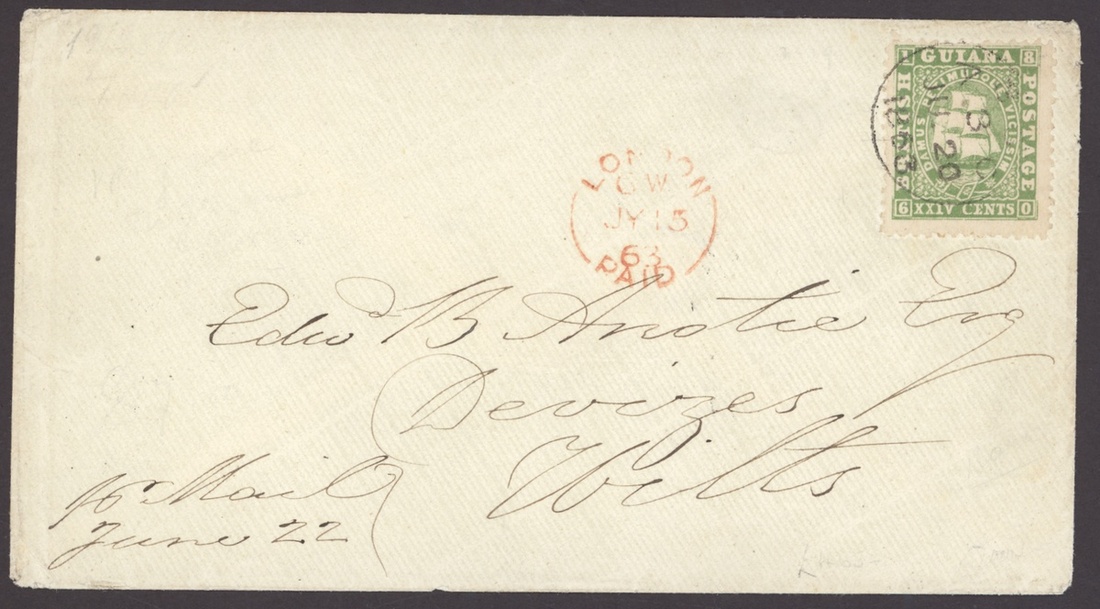 1 GUIANA 8
BRITISH
POSTAGE
DAMUS PETIMUSQUE VICISSIM
6 XXIV CENTS 0
B
20
1863
LONDON
JY 15
63
PAID
Edwd B Anstie Esq
Devizes
Wilts
pr Mail
June 22